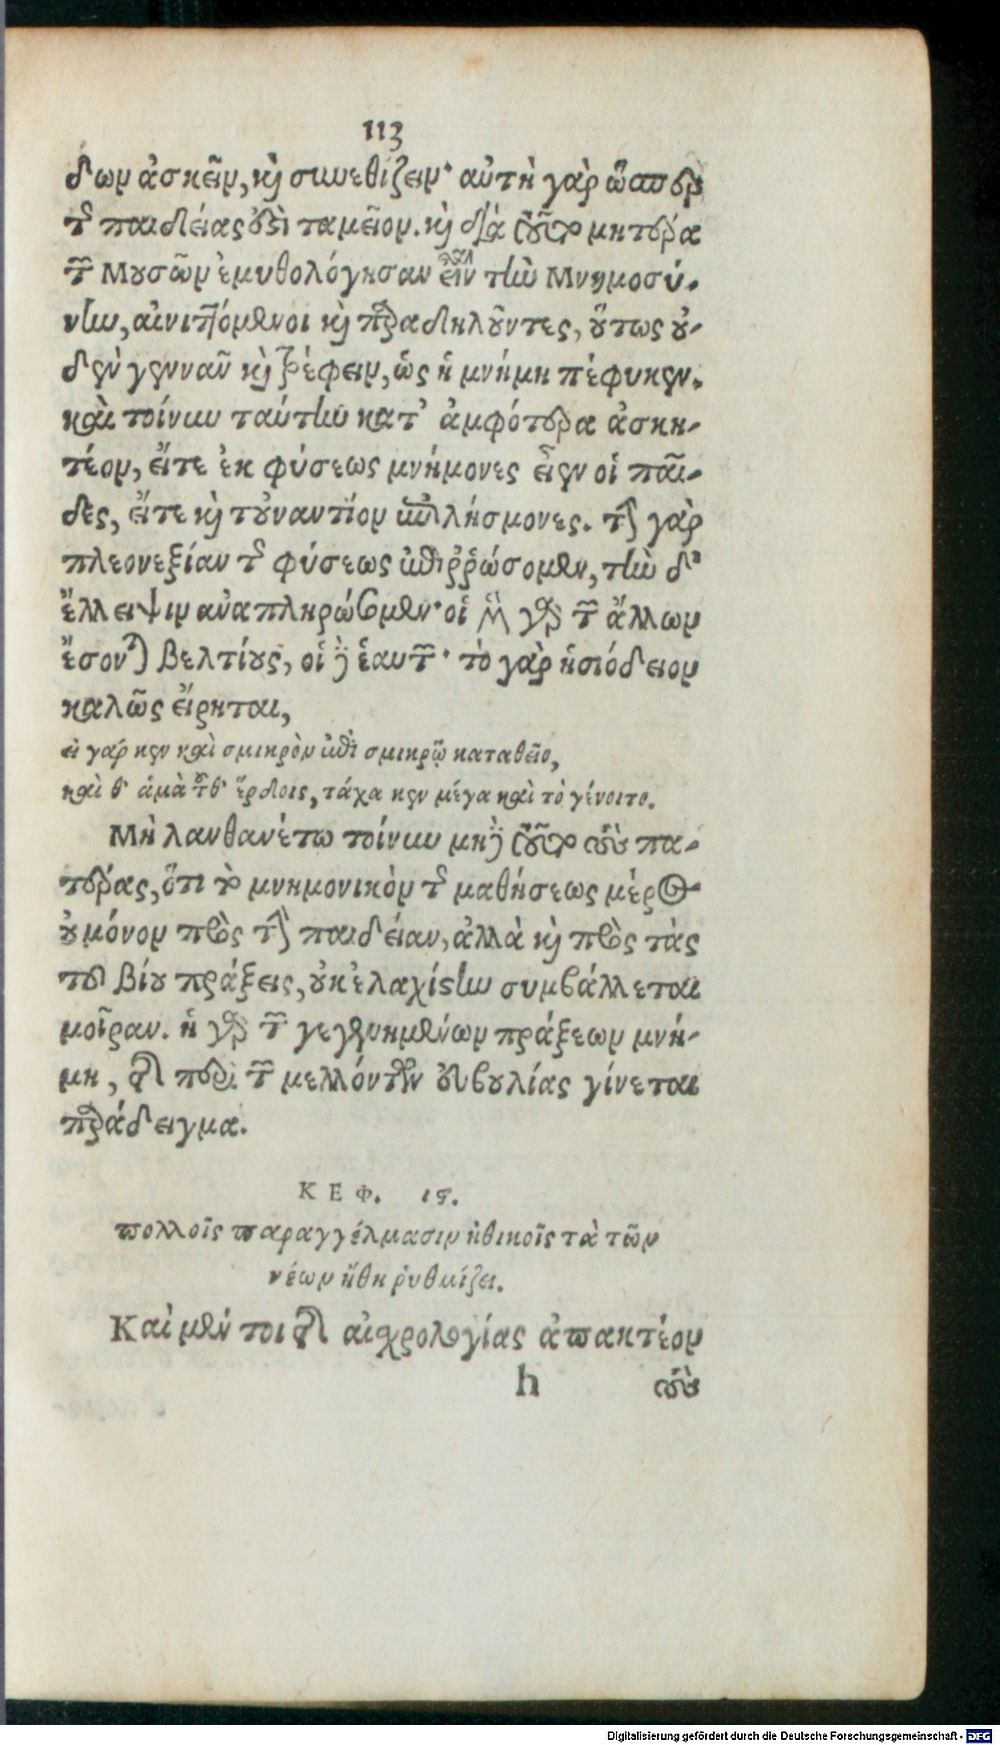 113
δων ἀσκεῖν, καὶ συνεθίζειν· αὕτη γὰρ ὥσπερ
τῆς παιδείας ἐστὶ ταμεῖον. καὶ διὰ τοῦτο μητέρα
τῶν Μουσῶν ἐμυθολόγησαν εἶναι τὴν Μνημοσύ-
νην, αἰνιττόμενοι καὶ παραδηλοῦντες, οὕτως οὐ-
δὲν γεννᾶν καὶ τρέφειν, ὡς ἡ μνήμη πέφυκεν.
καὶ τοίνυν ταύτην κατ' ἀμφότερα ἀσκη-
τέον, εἴτε ἐκ φύσεως μνήμονες εἶεν οἱ παῖ-
δες, εἴτε καὶ τοὐναντίον ἐπιλήσμονες. τὴν γὰρ
πλεονεξίαν τῆς φύσεως ἐπιῤῥώσομεν, τὴν δ'
ἔλλειψιν ἀναπληρώσομεν· οἱ μὲν γὰρ τῶν ἄλλων
ἔσονται βελτίους, οἱ δὲ ἑαυτῶν· τὸ γὰρ ἡσιόδειον
καλῶς εἴρηται,
εἰ γάρ κεν καὶ σμικρὸν ἐπὶ σμικρῷ καταθεῖο,
καὶ θ' ἁμὰ τοῦθ' ἕρδοις, τάχα κεν μέγα καὶ τὸ γένοιτο.
Μὴ λανθανέτω τοίνυν μηδὲ τοῦτο τοὺς πα-
τέρας, ὅτι τὸ μνημονικὸν τῆς μαθήσεως μέρος
οὐ μόνον πρὸς τὴν παιδείαν, ἀλλὰ καὶ πρὸς τὰς
τοῦ βίου πράξεις, οὐκ ἐλαχίστην συμβάλλεται
μοῖραν. ἡ γὰρ τῶν γεγενημένων πράξεων μνή-
μη, τῆς περὶ τῶν μελλόντων εὐβουλίας γίνεται
παράδειγμα.
ΚΕΦ. ιϛ.
πολλοῖς παραγγέλμασιν ἠθικοῖς τὰ τῶν
νέων ἤθη ῥυθμίζει.
Καὶ μέν τοι τῆς αἰσχρολογίας ἀπακτέον
h τοὺς
Digitalisierung gefördert durch die Deutsche Forschungsgemeinschaft - DFG